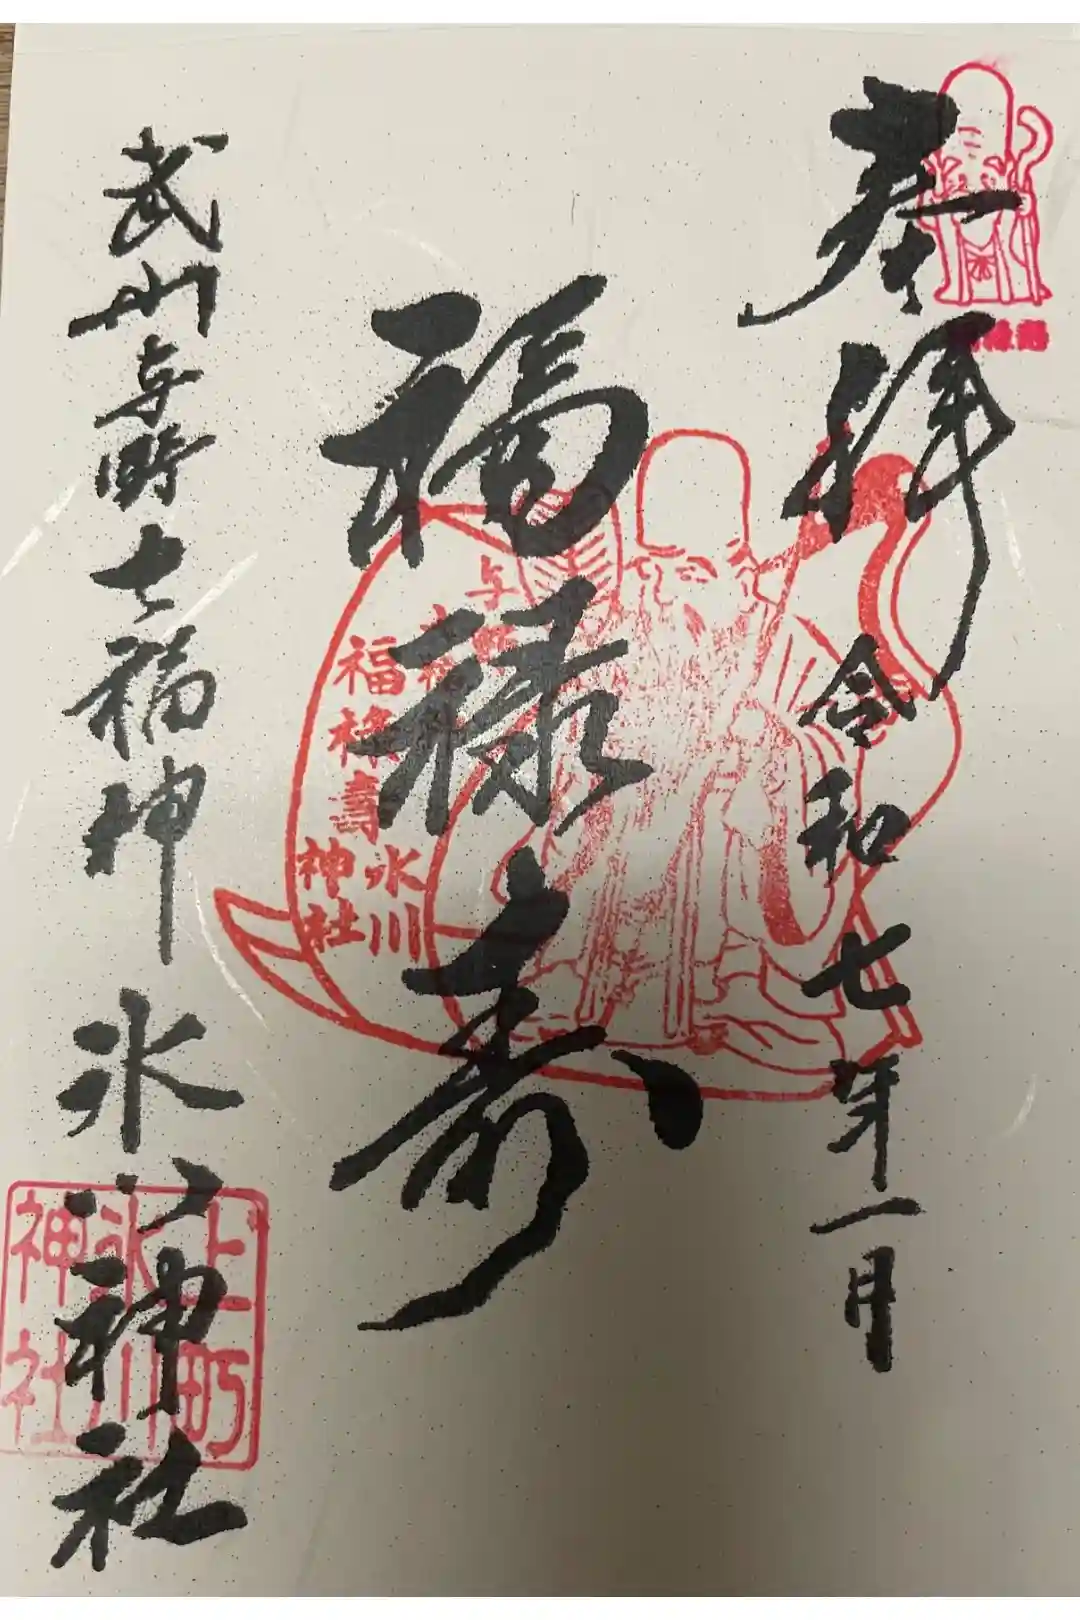 奉拝 令和七年一月
福禄寿
武州与野七福神 氷川神社
与野
七福神
福禄壽
氷川
神社
上町
氷川
神社